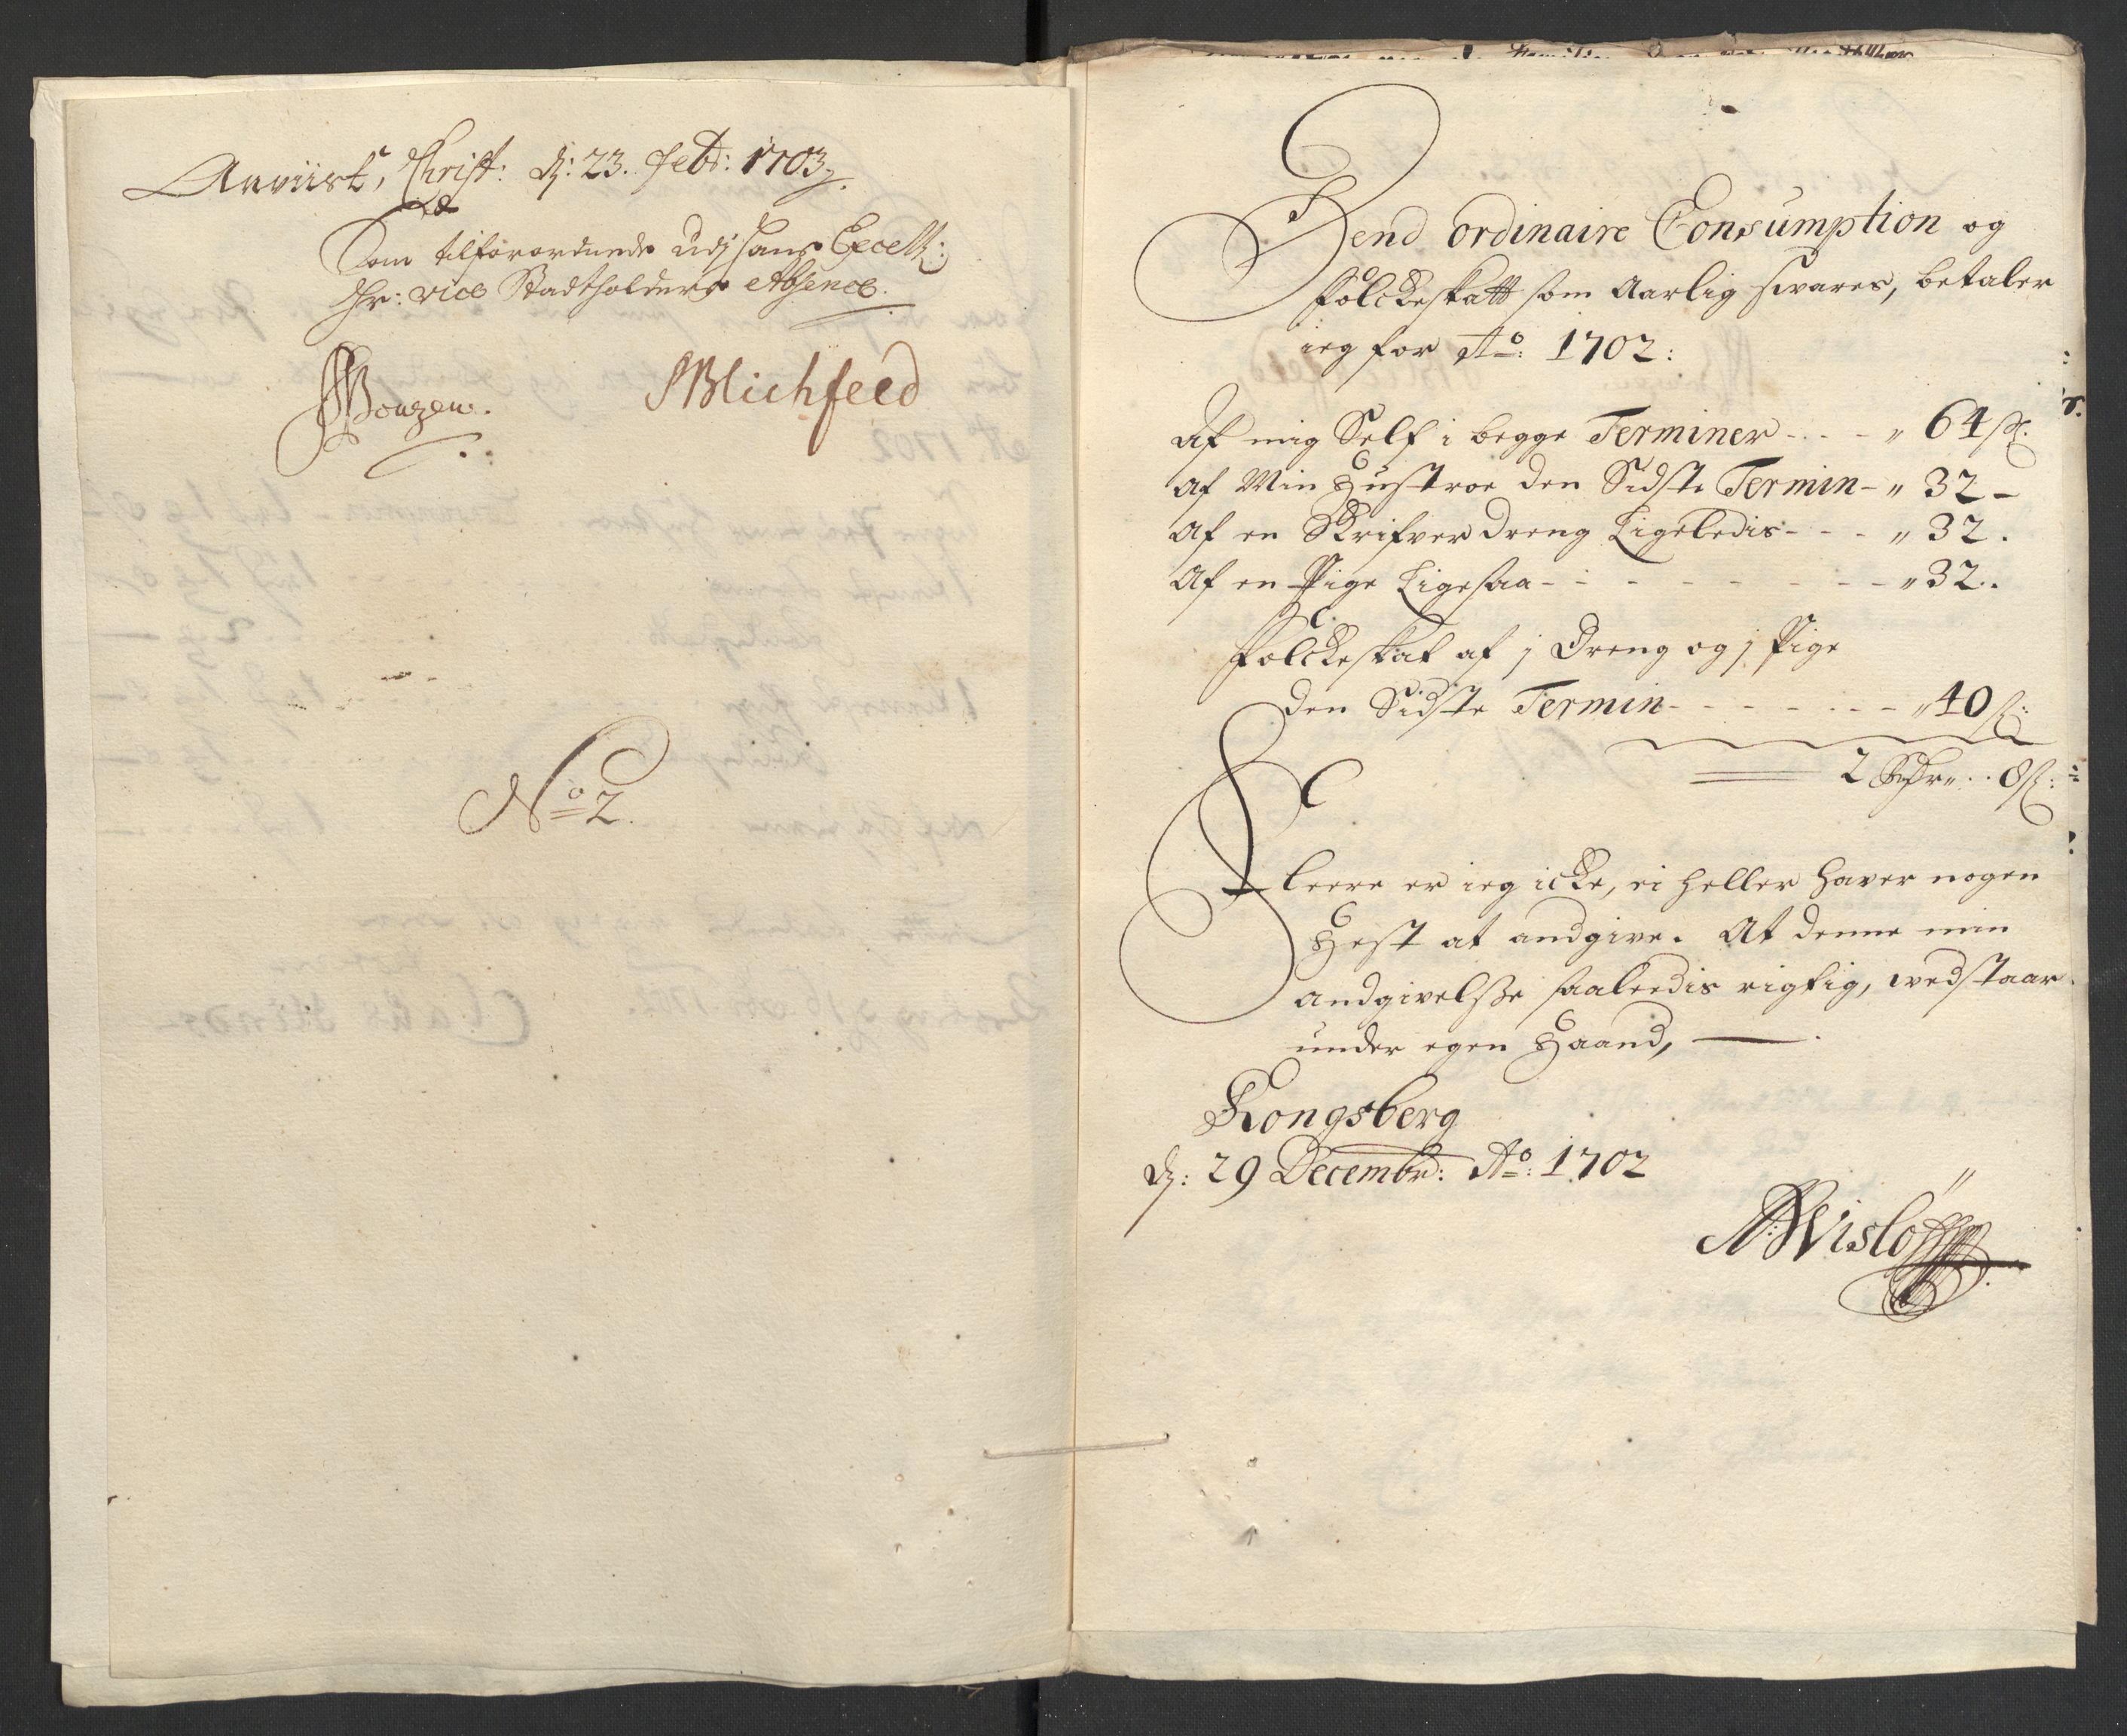 Anviist, Christ: d: 23. Febr: 1703
Som tilforordnede udj hans Excell:
Hr: Vice Stadtholders Absence.
SBlichfeld
No 2.
Dend Ordinaire Consumption og
folckeskatt som Aarlig svares, betaler
ieg for Ao: 1702:
Af mig Self i begge Terminer - - - " 64 ß.
Af Min Hustroe den Sidste Termin - " 32 -
Af en Skrifver dreng Ligeledis - - - " 32.
Af en Pige Ligesaa - - - - - - - - " 32.
folckeskat af j Dreng og j Pige
den Sidste Termin - - - - - - - " 40 ß:
2 Rdr " . 8 ß:
Fleere er ieg icke, ei heller haver nogen
Hest at andgive. At denne min
andgivelsse saaleedis rigtig, vedstaar
under egen Haand,
Kongsberg
d: 29 Decembr: Ao: 1702
A:Wislöff